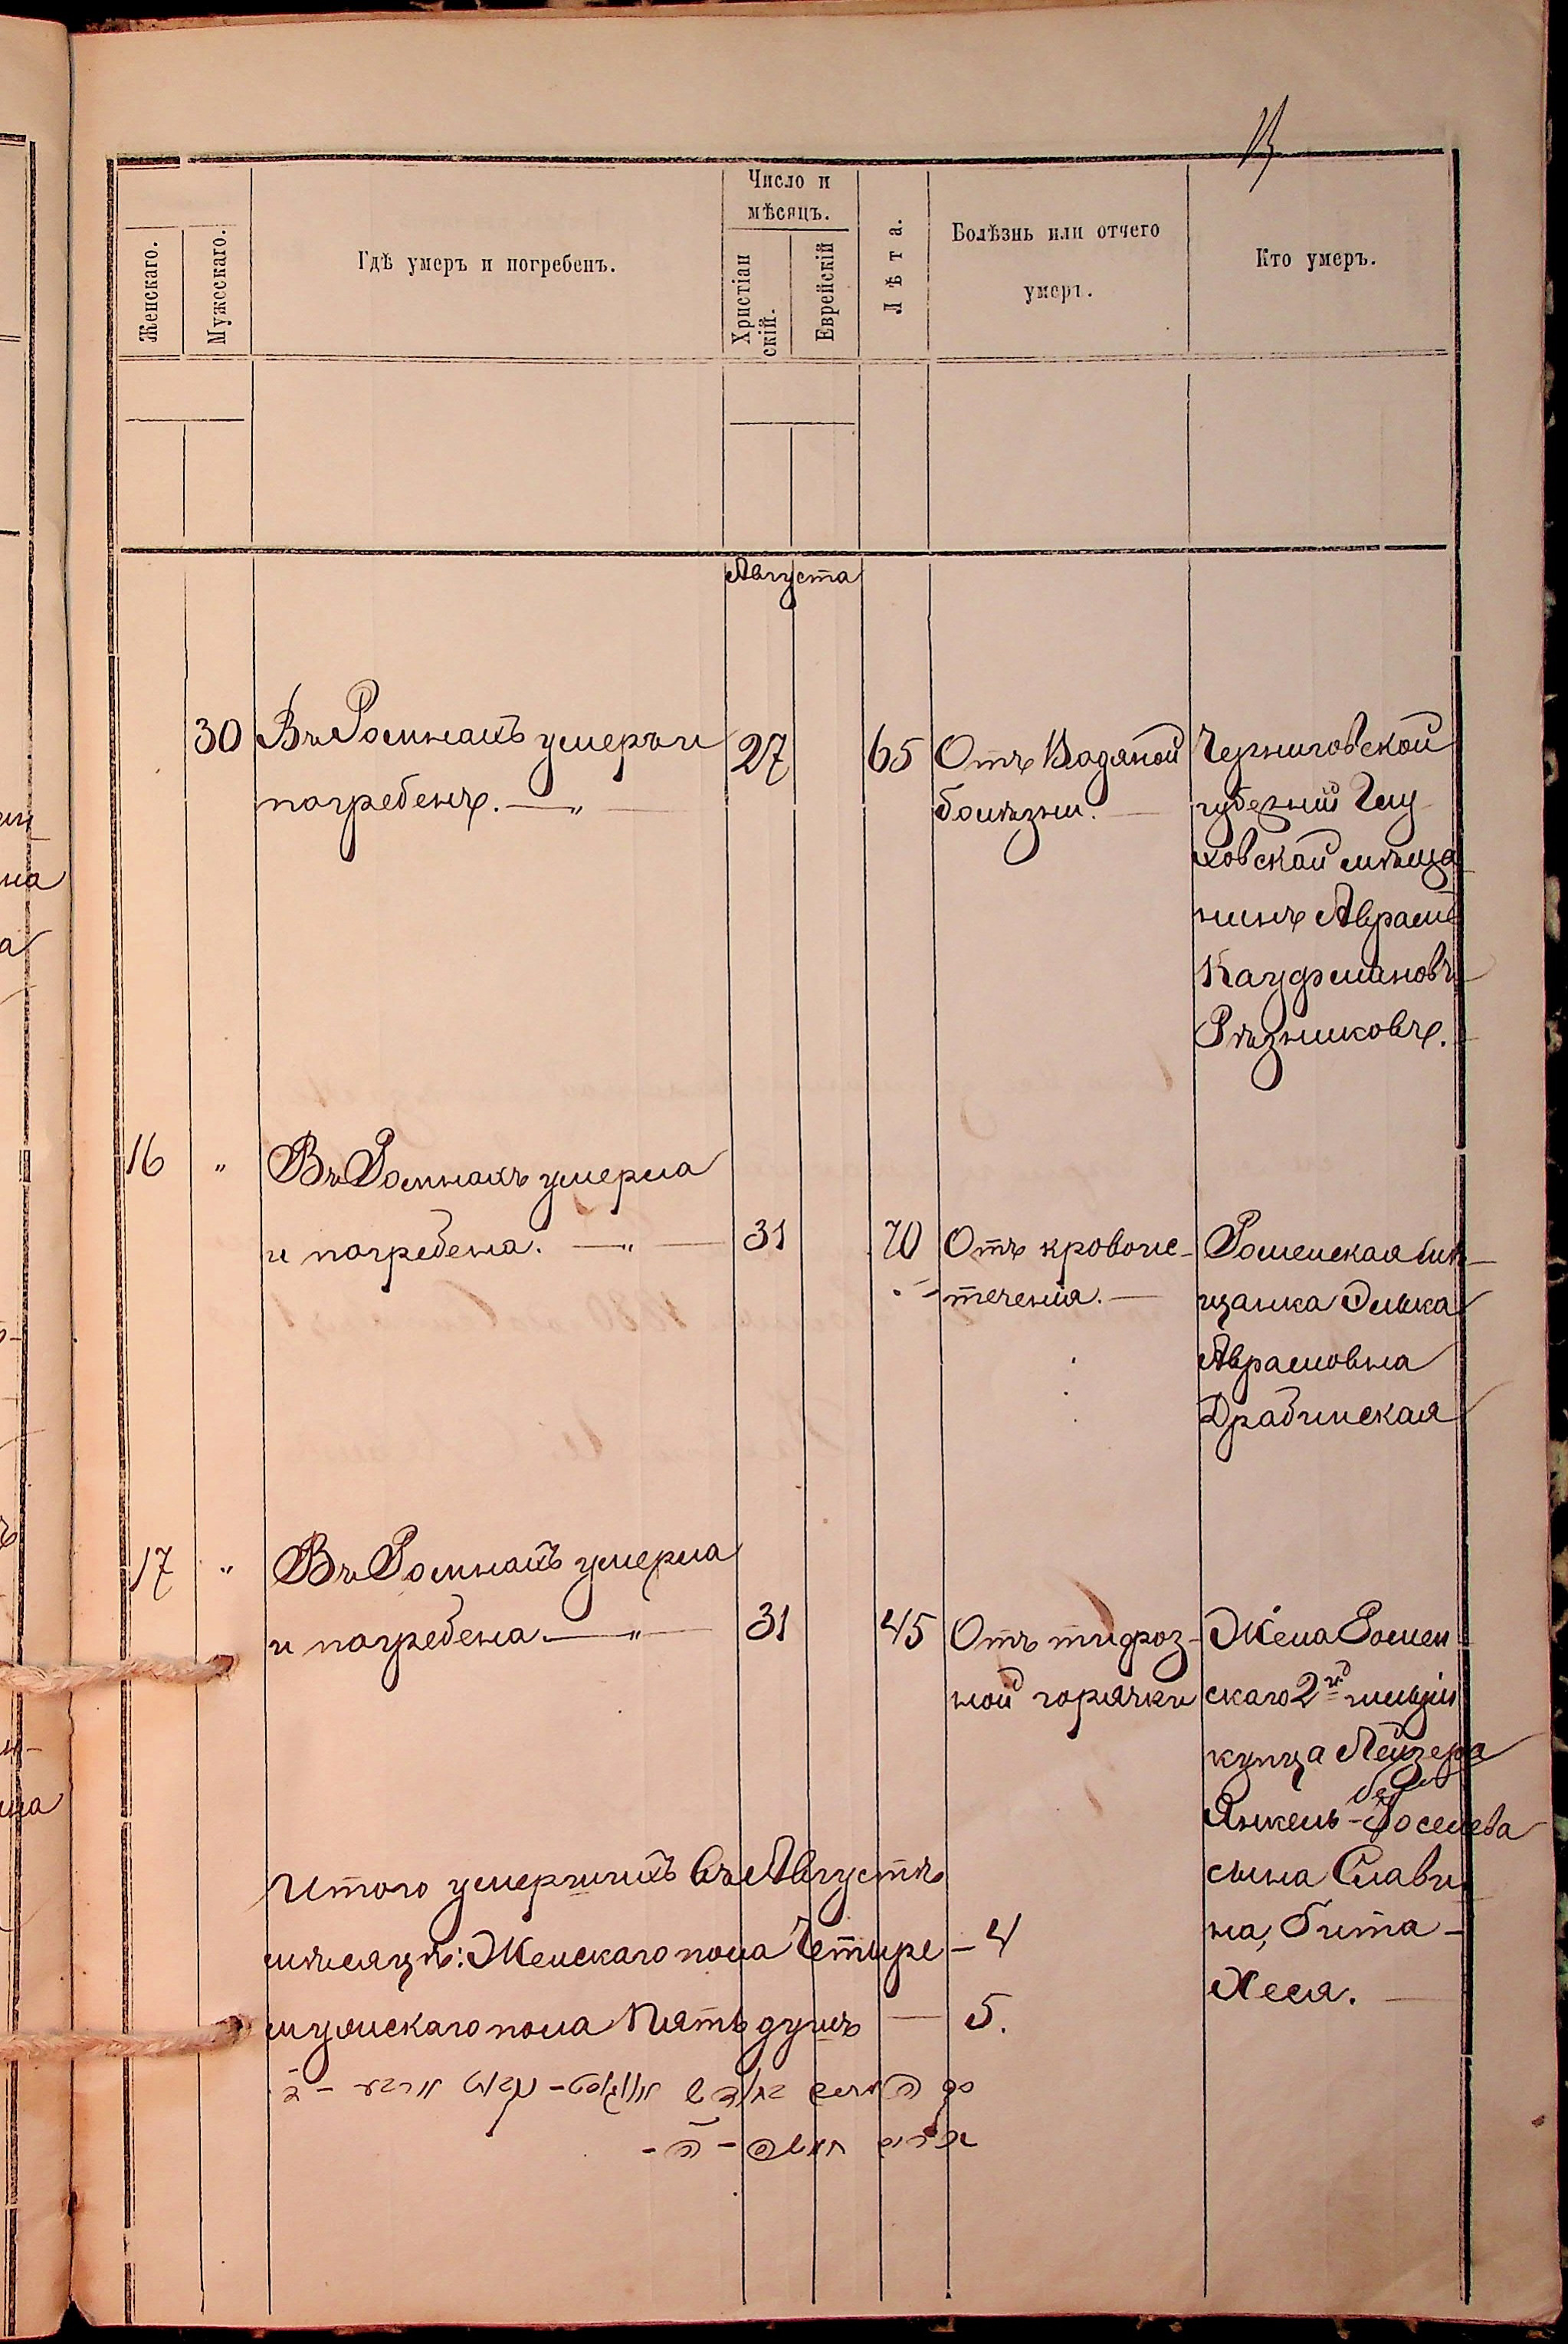 13
Женскаго.
Мужескаго.
Гдѣ умеръ и погребенъ.
Число и
мѣсяцъ.
Христіан
скій.
Еврейскій
Лѣта.
Болѣзнь или отчего
умеръ.
Кто умеръ.
Августа
30 Въ Ромнахъ умеръ и 27 65 Отъ Водяной Черниговской
погребенъ. — „ — болѣзни. — губерніи Глу
ховской мѣща
нинъ Аврамъ
Кауфмановъ
Рѣзниковъ.
16 „ Въ Ромнахъ умерла
и погребена. — „ — 31 70 Отъ кровоис- Роменская мѣ-
теченія. — щанка Элька
Аврамовна
Драбинская
17 „ Въ Ромнахъ умерла
и погребена — „ — 31 45 Отъ тифоз- Жена Ромен
ной горячки скаго 2й гильдіи
купца Лейзера
Янкель-Іоселева
сына Слави
на, Гита-
Хеся. —
Итого умершихъ въ Августѣ
мѣсяцѣ: Женскаго пола Четыре - 4
мужескаго пола Пять душъ — 5.